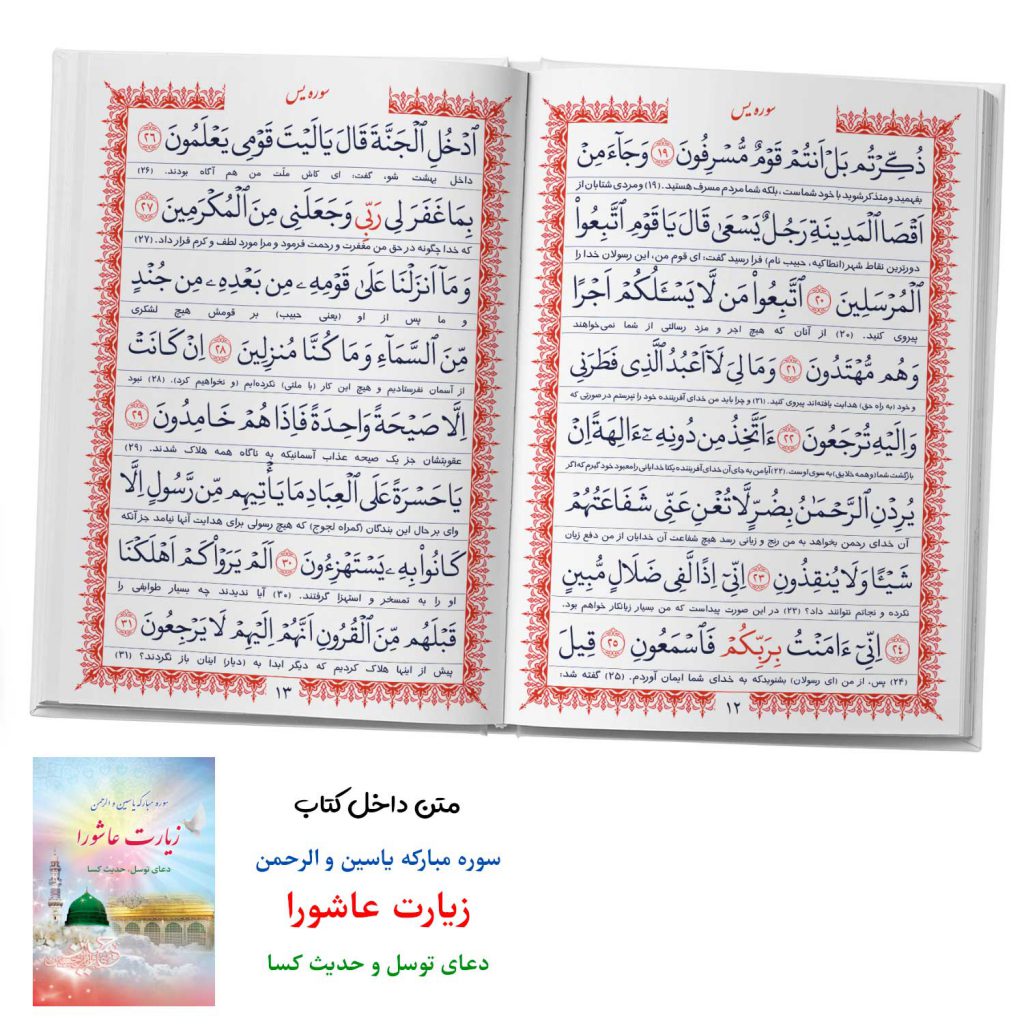 سوره یس
ذُكِّرْتُم بَلْ اَنتُمْ قَوْمٌ مُّسْرِفُونَ ﴿۱۹﴾ وَجَآءَ مِنْ
بفهمید و متذکر شوید با خود شماست، بلکه شما مردم مسرف هستید. (۱۹) و مردی شتابان از
اَقْصَا الْمَدِينَةِ رَجُلٌ يَسْعَىٰ قَالَ يَا قَوْمِ اتَّبِعُواْ
دورترین نقاط شهر (انطاکیه، حبیب نام) فرا رسید گفت: ای قوم من، این رسولان خدا را
الْمُرْسَلِينَ ﴿۲۰﴾ اتَّبِعُواْ مَن لَّا يَسْئَلُكُمْ اَجْرًا
پیروی کنید. (۲۰) از آنان که هیچ اجر و مزد رسالتی از شما نمی‌خواهند
وَهُم مُّهْتَدُونَ ﴿۲۱﴾ وَمَا لِيَ لَآ اَعْبُدُ الَّذِي فَطَرَنِي
و خود (به راه حق) هدایت یافته‌اند پیروی کنید. (۲۱) و چرا باید من خدای آفریننده خود را نپرستم در صورتی که
وَاِلَيْهِ تُرْجَعُونَ ﴿۲۲﴾ ءَاَتَّخِذُ مِن دُونِهِ ءَالِهَةً اِن
بازگشت شما (و همه خلایق) به سوی اوست. (۲۲) آیا من به جای آن خدای آفریننده یکتا خدایانی را معبود خود گیرم که اگر
يُرِدْنِ الرَّحْمَـٰنُ بِضُرٍّ لَّا تُغْنِ عَنِّي شَفَاعَتُهُمْ
آن خدای رحمن بخواهد به من رنج و زیانی رسد هیچ شفاعت آن خدایان از من دفع زیان
شَيْـًٔا وَلَا يُنقِذُونِ ﴿۲۳﴾ اِنِّي اِذًا لَّفِي ضَلَالٍ مُّبِينٍ
نکرده و نجاتم نتوانند داد؟ (۲۳) در این صورت پیداست که من بسیار زیانکار خواهم بود.
﴿۲۴﴾ اِنِّي ءَامَنْتُ بِرَبِّكُمْ فَاسْمَعُونِ ﴿۲۵﴾ قِيلَ
(۲۴) پس، از من (ای رسولان) بشنوید که به خدای شما ایمان آوردم. (۲۵) گفته شد:
۱۲
سوره یس
ادْخُلِ الْجَنَّةَ قَالَ يَا لَيْتَ قَوْمِي يَعْلَمُونَ ﴿۲۶﴾
داخل بهشت شو، گفت: ای کاش ملّت من هم آگاه بودند. (۲۶)
بِمَا غَفَرَ لِي رَبِّي وَجَعَلَنِي مِنَ الْمُكْرَمِينَ ﴿۲۷﴾
که خدا چگونه در حق من مغفرت و رحمت فرمود و مرا مورد لطف و کرم قرار داد. (۲۷)
وَمَآ اَنزَلْنَا عَلَىٰ قَوْمِهِ مِن بَعْدِهِ مِن جُندٍ
و ما پس از او (یعنی حبیب) بر قومش هیچ لشکری
مِّنَ السَّمَآءِ وَمَا كُنَّا مُنزِلِينَ ﴿۲۸﴾ اِن كَانَتْ
از آسمان نفرستادیم و هیچ این کار (با ملتی) نکرده‌ایم (و نخواهیم کرد). (۲۸) نبود
اِلَّا صَيْحَةً وَاحِدَةً فَاِذَا هُمْ خَامِدُونَ ﴿۲۹﴾
عقوبتشان جز یک صیحه عذاب آسمانیکه به ناگاه همه هلاک شدند. (۲۹)
يَا حَسْرَةً عَلَى الْعِبَادِ مَا يَأْتِيهِم مِّن رَّسُولٍ اِلَّا
وای بر حال این بندگان (گمراه لجوج) که هیچ رسولی برای هدایت آنها نیامد جز آنکه
كَانُواْ بِهِ يَسْتَهْزِءُونَ ﴿۳۰﴾ اَلَمْ يَرَوْاْ كَمْ اَهْلَكْنَا
او را به تمسخر و استهزا گرفتند. (۳۰) آیا ندیدند چه بسیار طوایفی را
قَبْلَهُم مِّنَ الْقُرُونِ اَنَّهُمْ اِلَيْهِمْ لَا يَرْجِعُونَ ﴿۳۱﴾
پیش از اینها هلاک کردیم که دیگر ابدا به (دیار) اینان باز نگردند؟ (۳۱)
۱۳
سوره مبارکه یاسین و الرحمن
زیارت عاشورا
دعای توسل، حدیث کسا
متن داخل کتاب
سوره مبارکه یاسین و الرحمن
زیارت عاشورا
دعای توسل و حدیث کسا